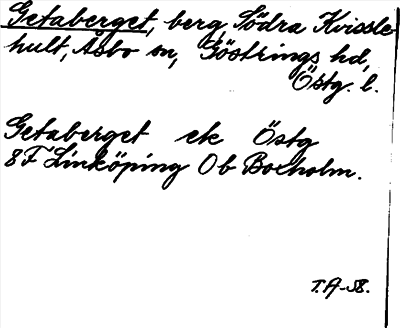 Getaberget, berg, Södra Kvissle
hult, Åsbo sn, Göstrings hd,
Östg. l.
Getaberget ek Östg
8F Linköping 0b Boxholm.
T.A-58.